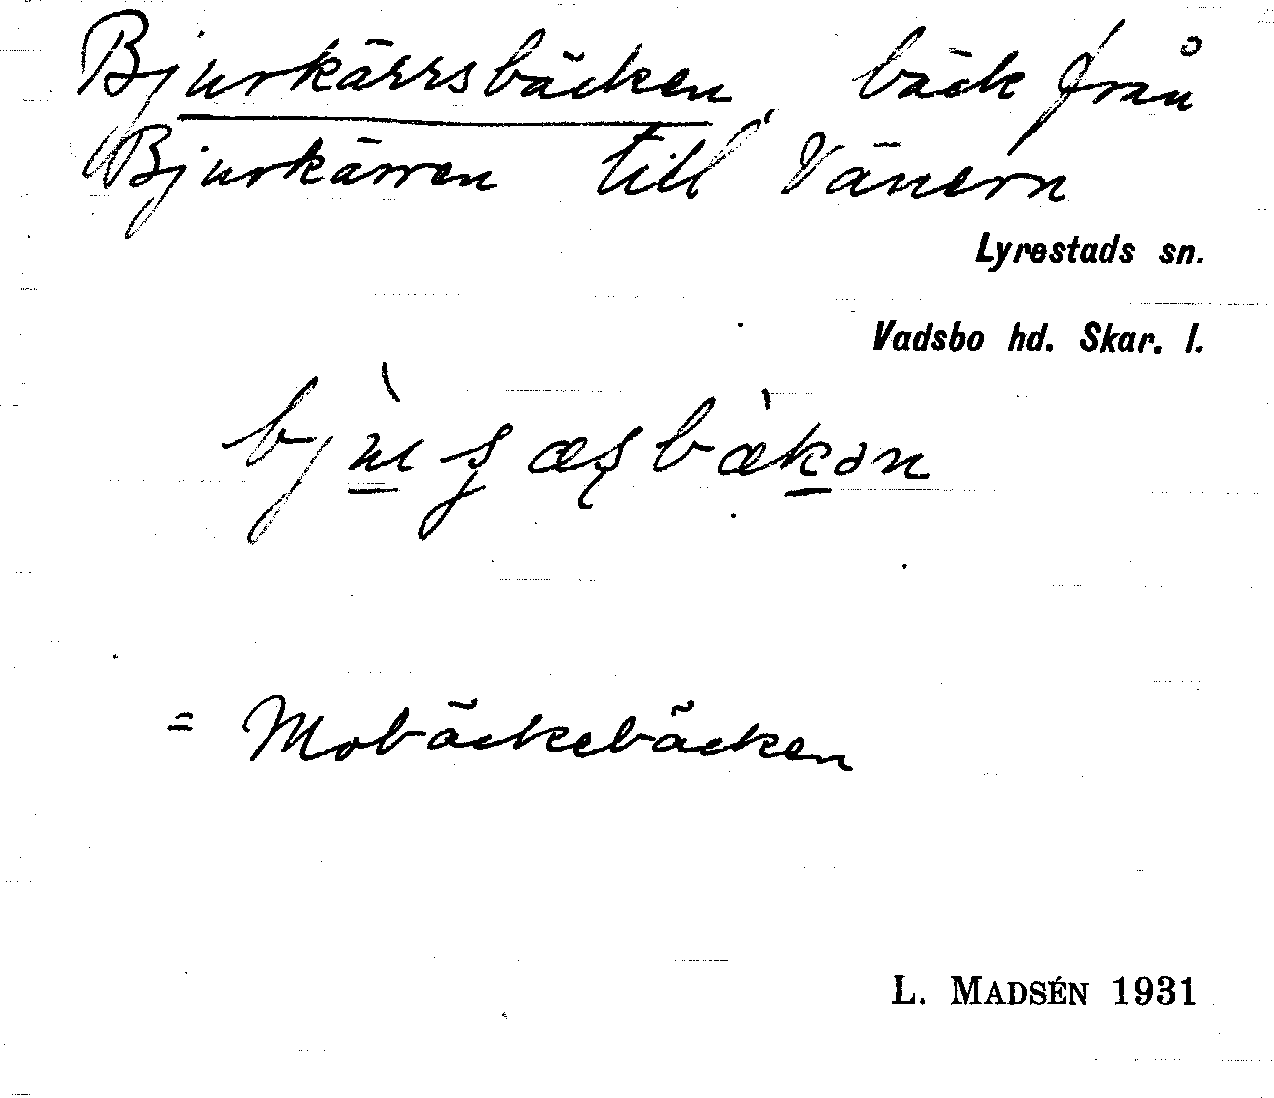 Bjurkärrsbäcken, bäck från
Bjurkärren till Vänern
Lyrestads sn.
Vadsbo hd. Skar. l.
= Mobäckebäcken
L. MADSÉN 1931